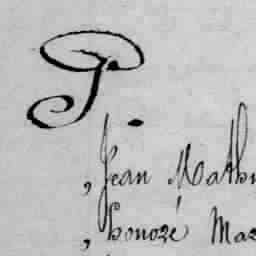 P.
, Jean Math
, honoré Ma